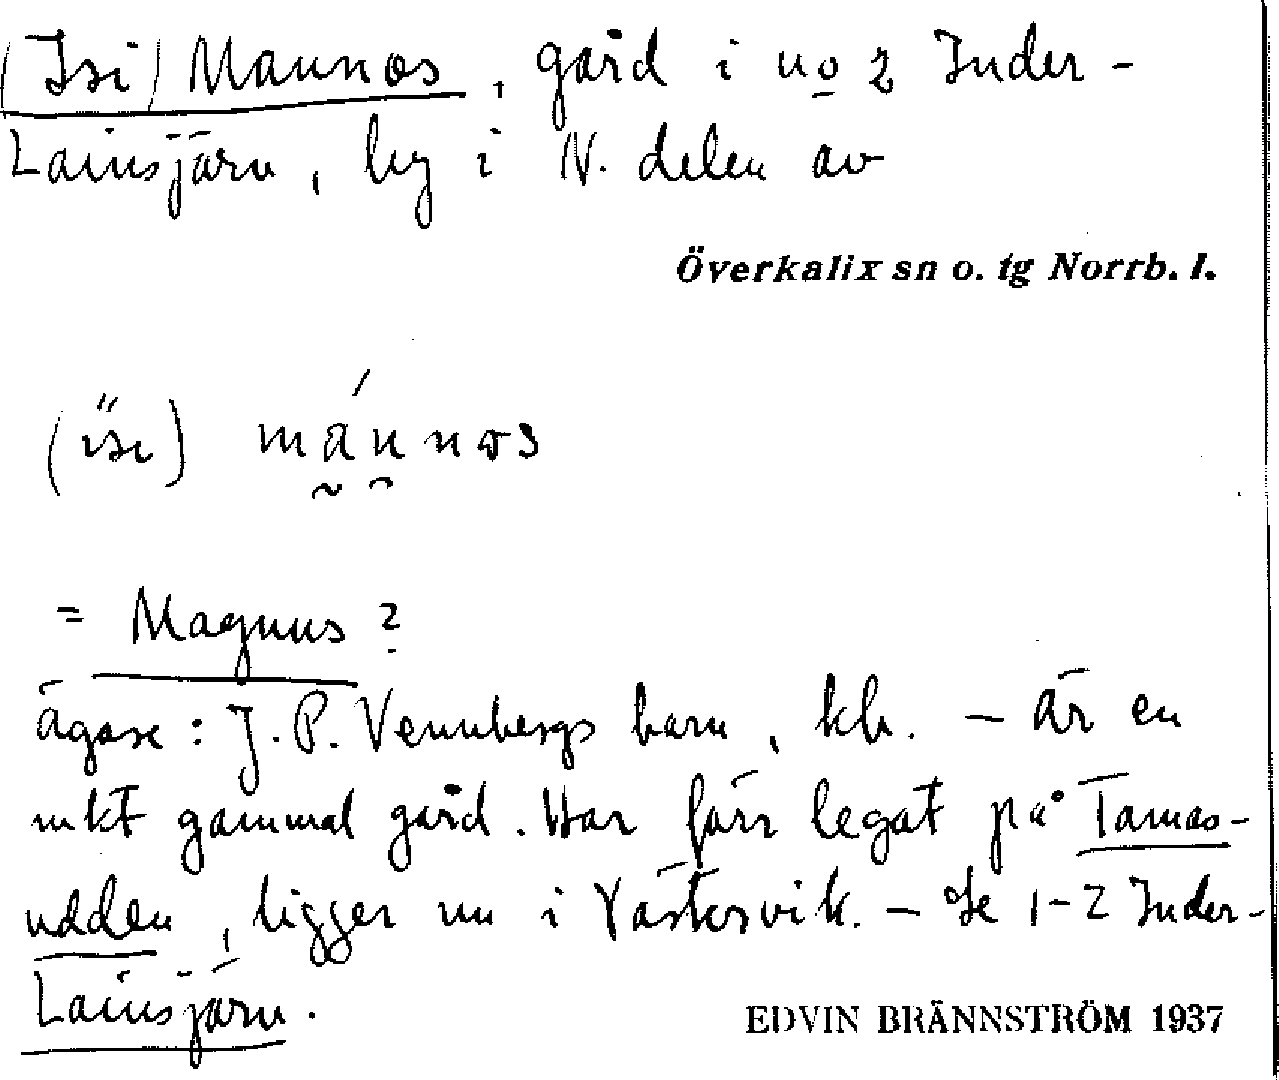 (Isi) Mannos, gård i no 2 Inder-
Lainsjärn, by i N. delen av
Överkalix sn o. tg Norrb. l.
(isi) mánnos
= Magnus?
ägare: J. P. Vennbergs barn, kb. – Är en
mkt gammal gård. Har förr legat på Tamas-
udden, ligger nu i Västersvik. – Se 1-2 Inder-
Lainsjärn.
EDVIN BRÄNNSTRÖM 1937